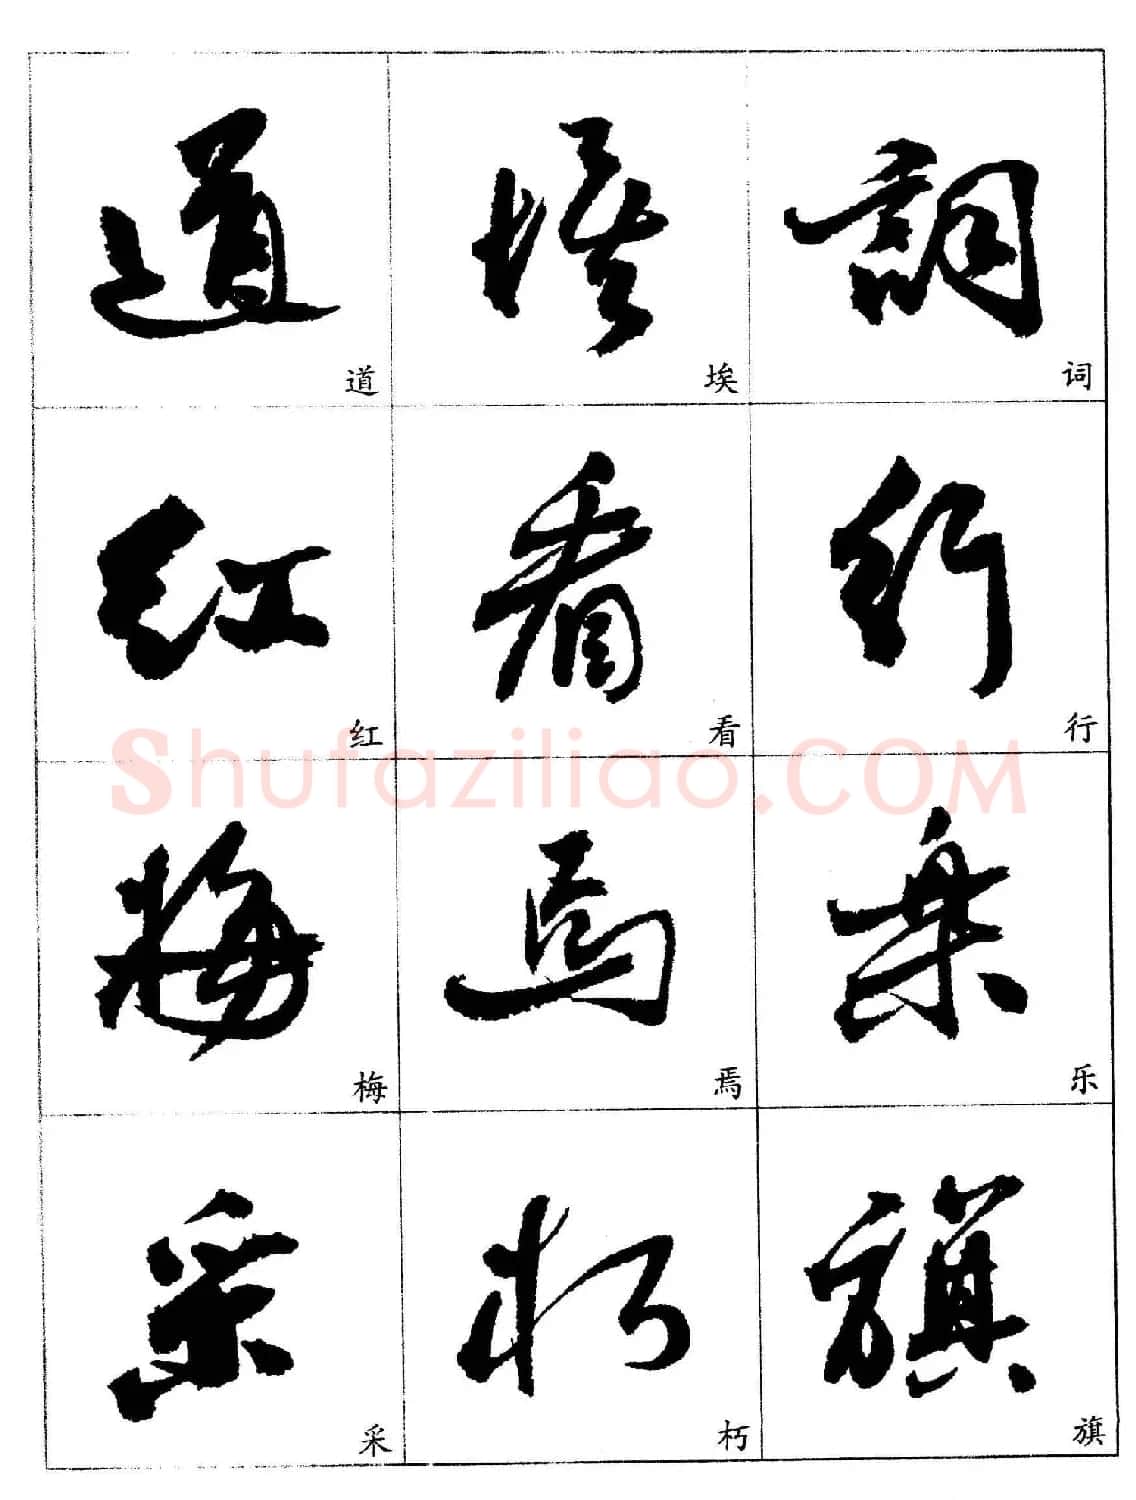 道 埃 詞
道 埃 词
红 看 行
红 看 行
Shufaziliao.COM
梅 焉 乐
梅 焉 乐
采 朽 旗
采 朽 旗